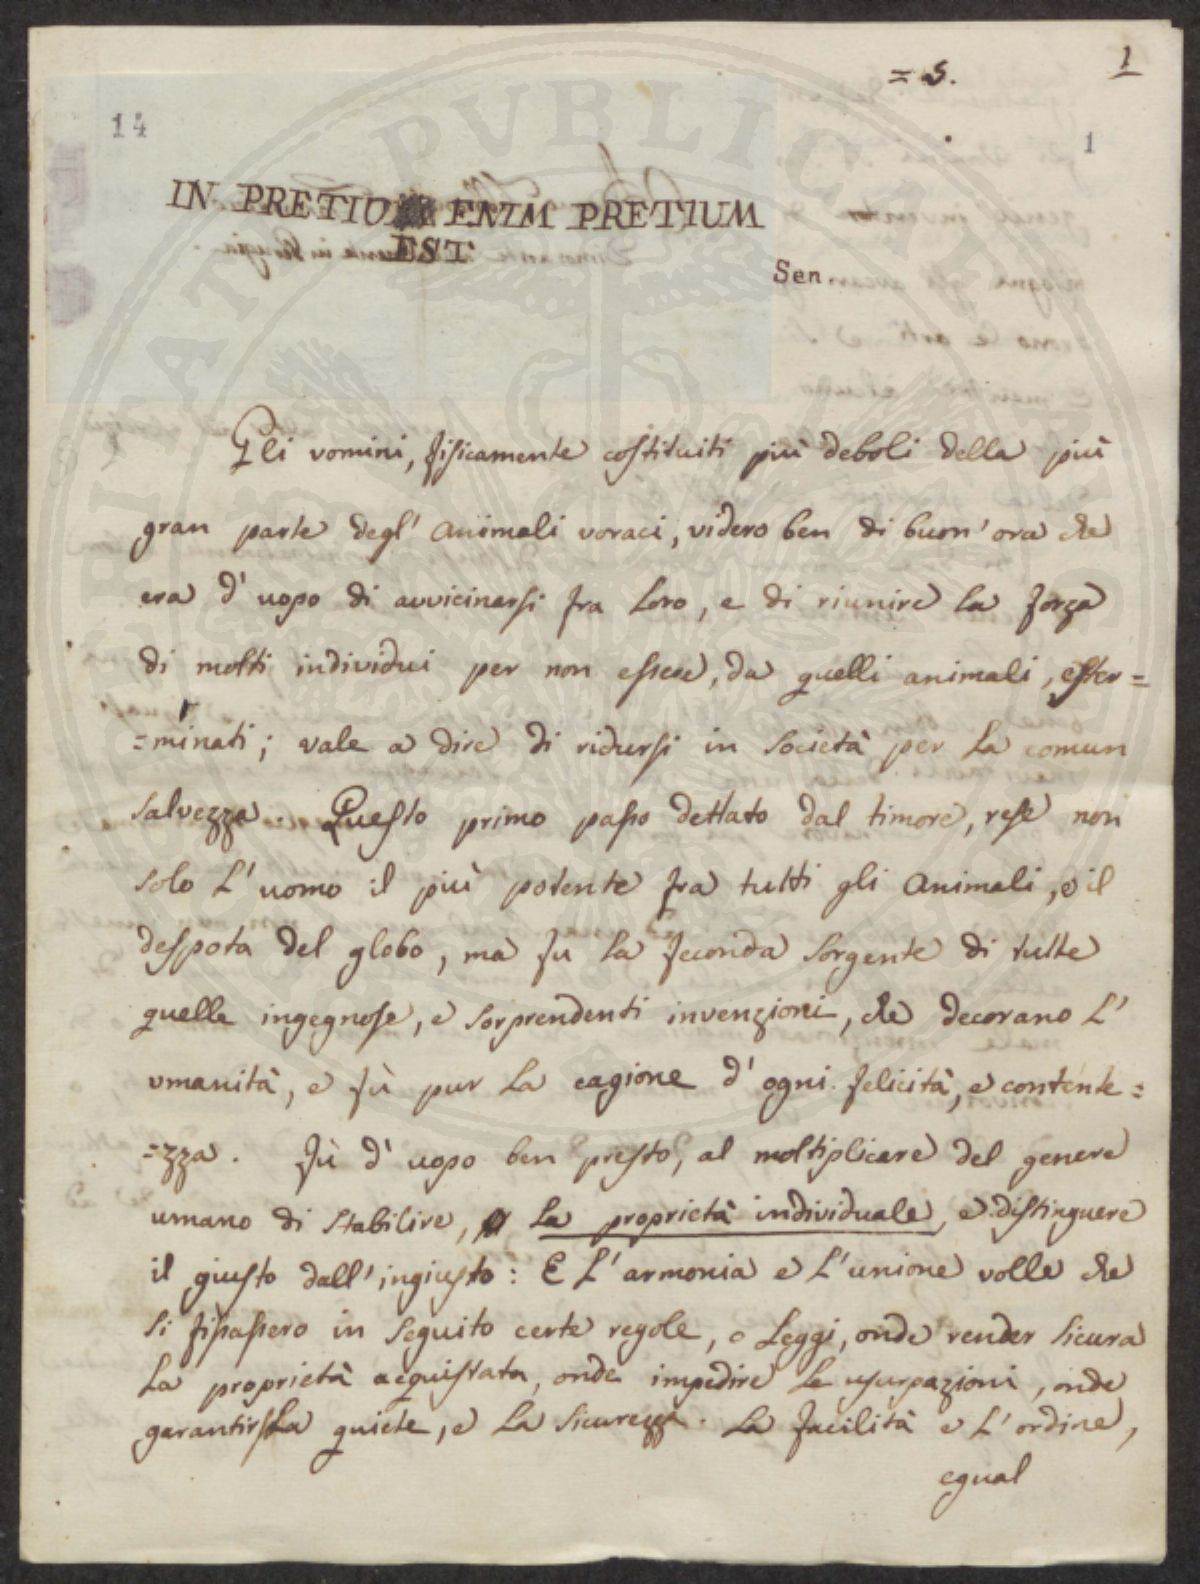 = 5.
1
14
1
IN PRETIO ENIM PRETIUM
EST
Sen.
Gli vomini, fisicamente costituiti più deboli della più
gran parte degl' animali voraci, videro ben di buon' ora che
era d' uopo di avvicinarsi fra loro, e di riunire la forza
di molti individui per non essere, da quelli animali, ester=
=minati; vale a dire di ridursi in Società per la comun
salvezza. Questo primo passo dettato dal timore, rese non
solo L' uomo il più potente fra tutti gli Animali, e il
despota del globo, ma fu la feconda sorgente di tutte
quelle ingegnose, e sorprendenti invenzioni, che decorano L'
vmanità, e fù pur la cagione d' ogni felicità, e contente=
=zza. Fù d' uopo ben presto, al moltiplicare del genere
umano di stabilire, la proprietà individuale, e distinguere
il giusto dall' ingiusto: E L' armonia e L' unione volle che
si fissassero in seguito certe regole, o Leggi, onde render sicura
La proprietà acquistata, onde impedire le usurpazioni, onde
garantirsi La quiete, e La sicurezza. La facilità e L' ordine,
egual
PUBLICA